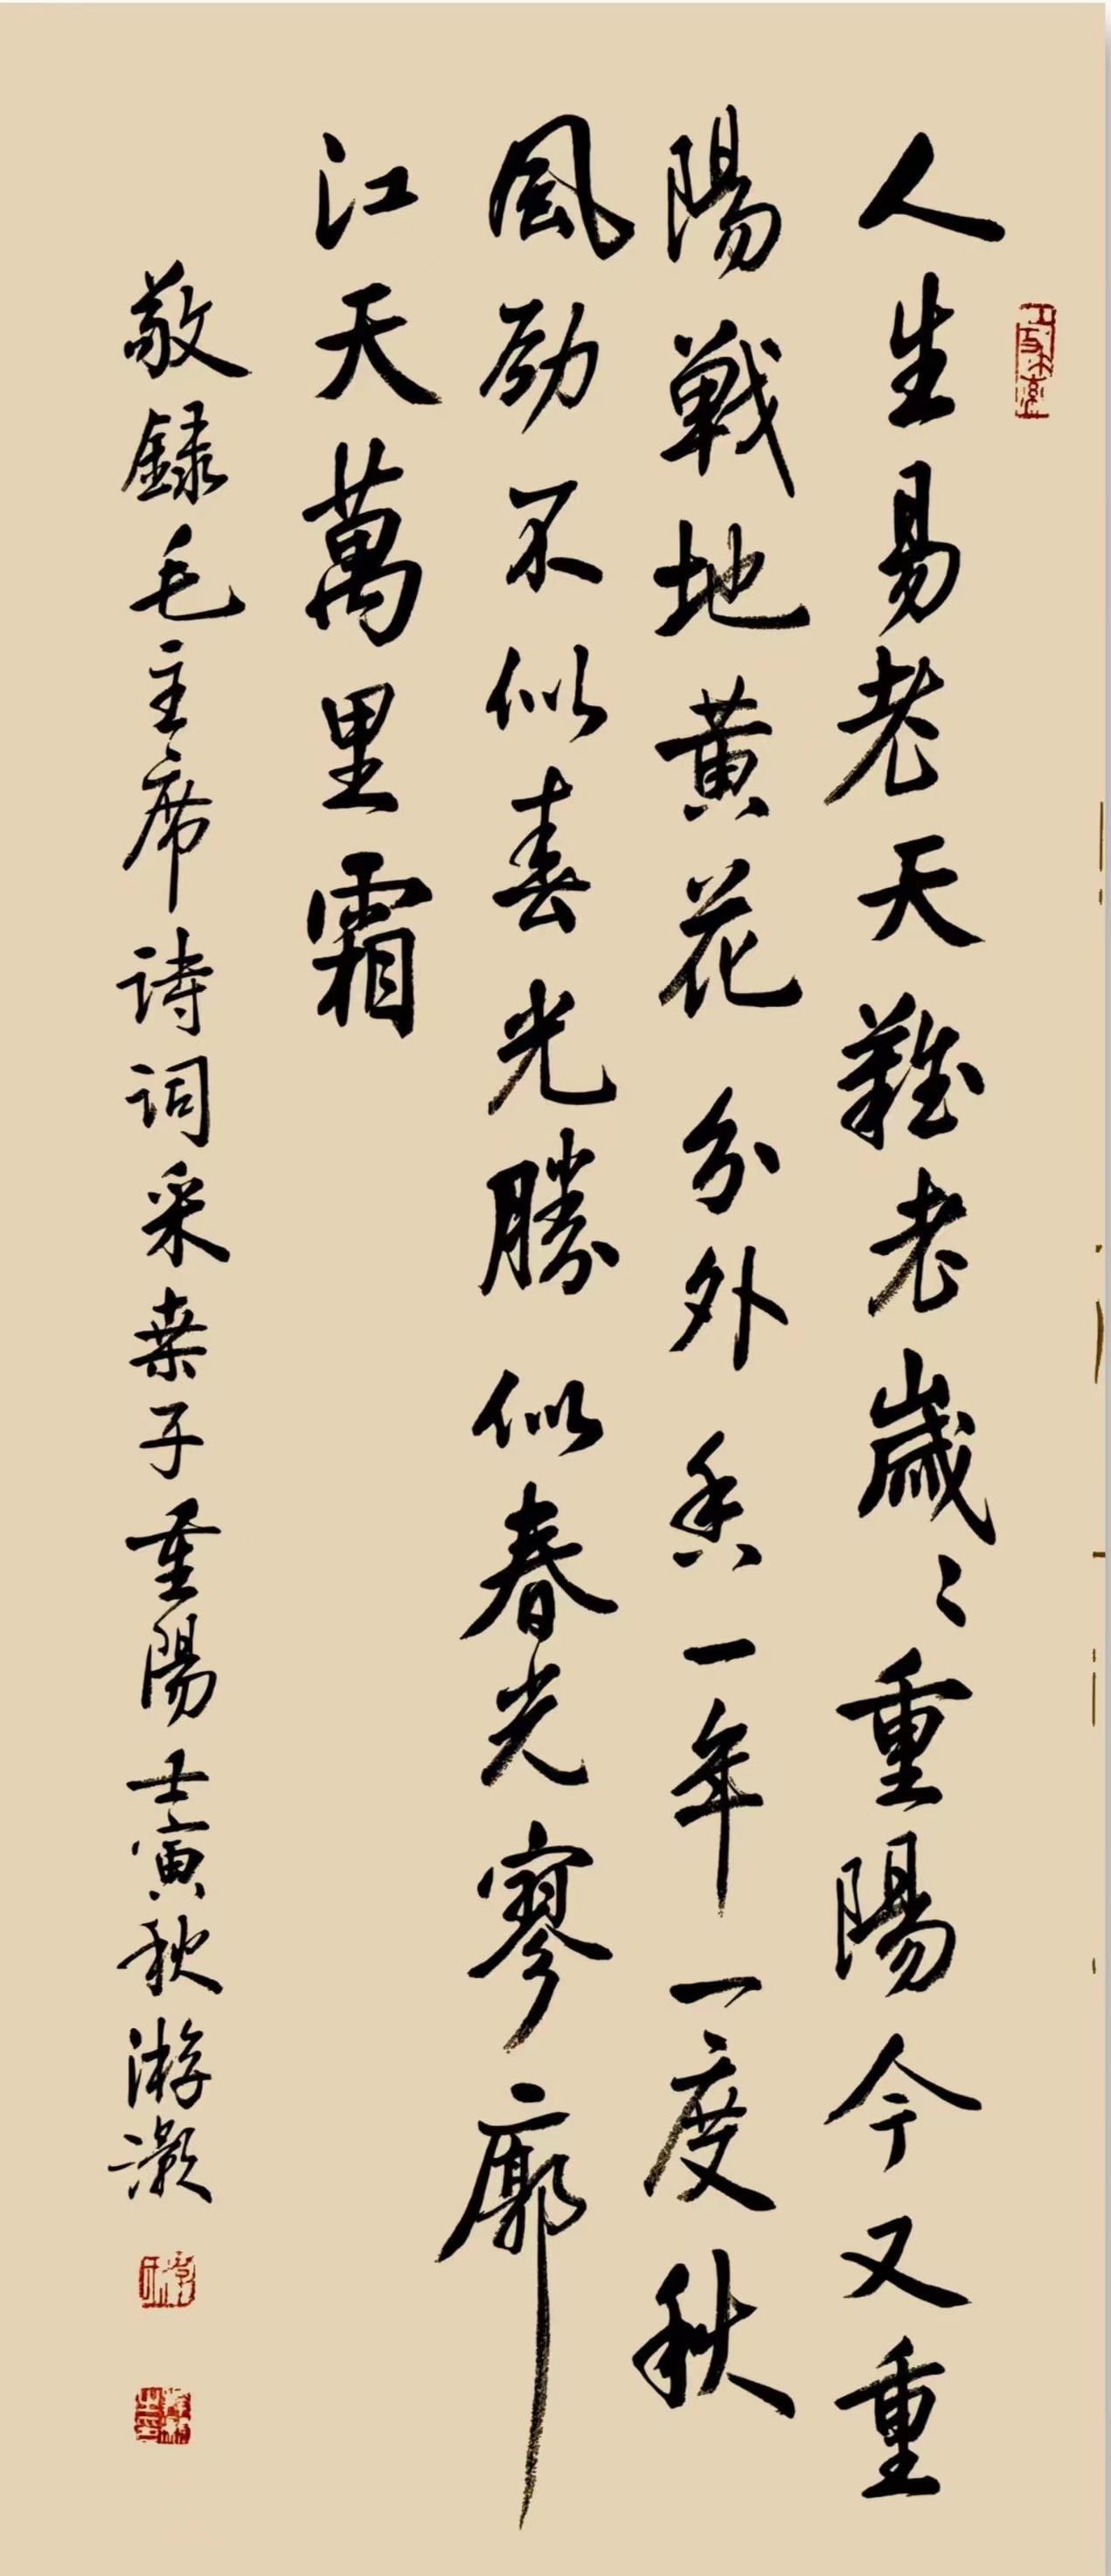 人生易老天難老歲〻重陽今又重
陽戰地黄花分外香一年一度秋
風勁不似春光勝似春光寥廓
江天萬里霜
敬録毛主席诗词采桑子重陽壬寅秋游灝